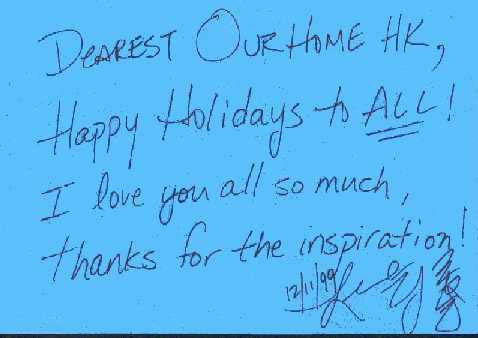 Dearest Our Home HK,
Happy Holidays to ALL!
I love you all so much,
thanks for the inspiration!
12/11/99